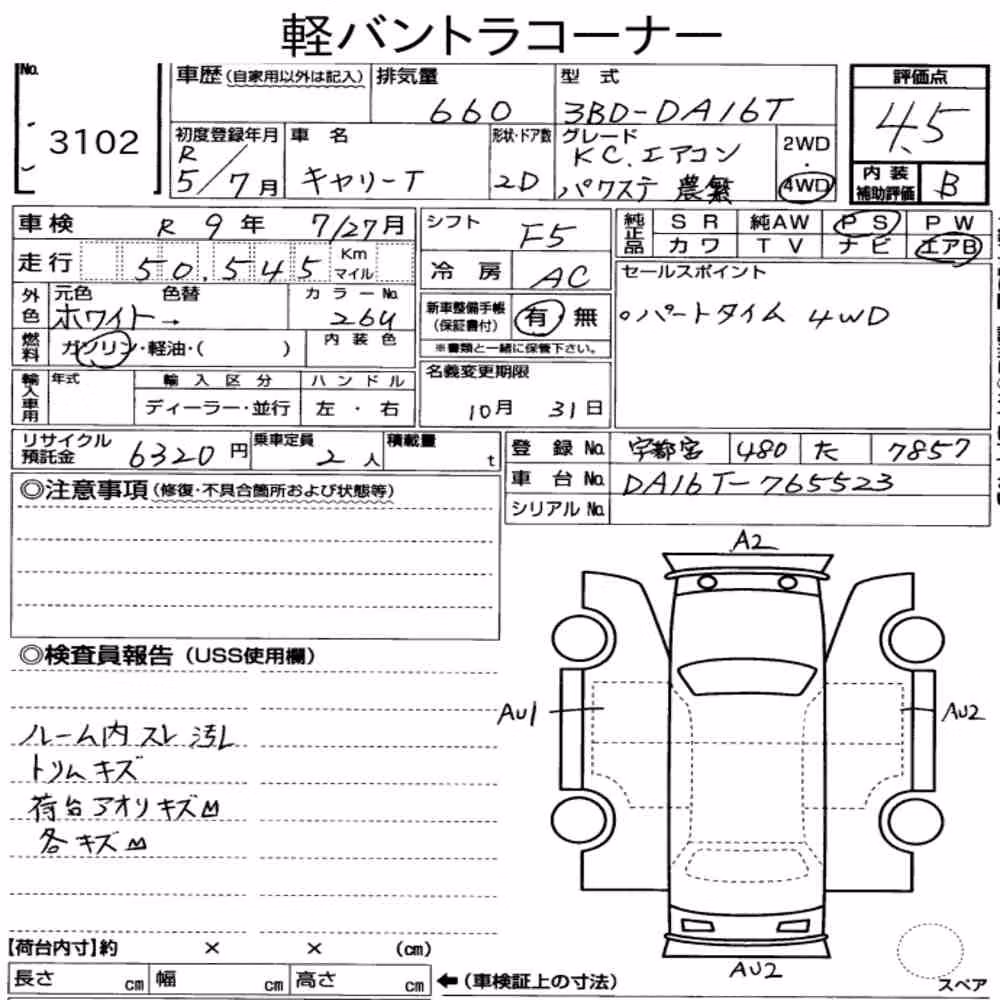 軽バントラコーナー
No. 3102
車歴(自家用以外は記入)
排気量 660
型式 3BD-DA16T
評価点 4.5
初度登録年月 R5/7月
車名 キャリーT
形状・ドア数 2D
グレード KC.エアコン パワステ 農繁
2WD・4WD
内装補助評価 B
車検 R9年 7/27月
シフト F5
純正品 SR 純AW PS PW
カワ TV ナビ エアB
走行 50,545 Km マイル
冷房 AC
セールスポイント
○パートタイム 4WD
外色 元色 色替 カラーNo.
ホワイト→ 26U
新車整備手帳(保証書付) 有 無
※書類と一緒に保管下さい。
燃料 ガソリン・軽油・( ) 内装色
輸入車用 年式 輸入区分 ハンドル
ディーラー・並行 左・右
名義変更期限
10月 31日
リサイクル預託金 6320円 乗車定員 2人 積載量 t
登録No. 宇都宮 480 た 7857
車台No. DA16T-765523
シリアルNo.
◎注意事項(修復・不具合箇所および状態等)
A2
◎検査員報告(USS使用欄)
AU1
AU2
ルーム内 スレ 汚レ
トリムキズ
荷台アオリキズ凹
各キズ凹
【荷台内寸】約 × × (cm)
長さ cm 幅 cm 高さ cm ←(車検証上の寸法)
AU2
スペア